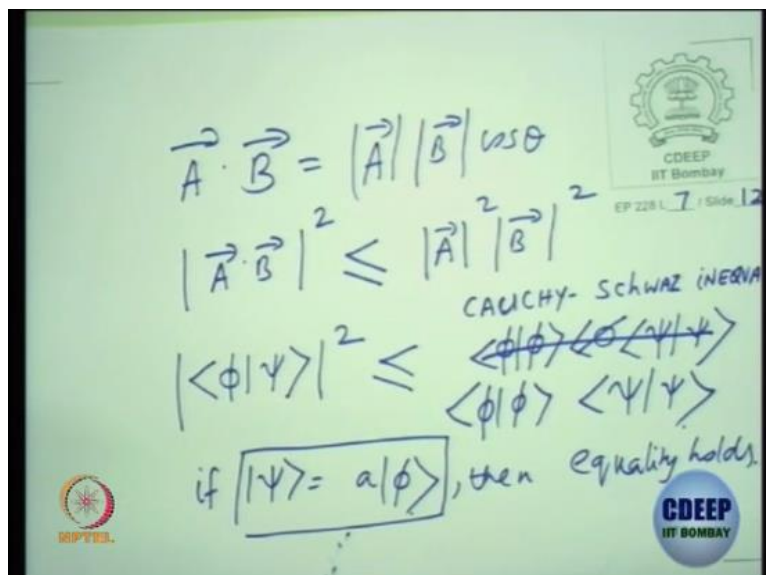 CDEEP
IIT Bombay
EP 228 L 7 / Slide 12
\vec{A} · \vec{B} = |\vec{A}| |\vec{B}| cosθ
|\vec{A} · \vec{B}|² ≤ |\vec{A}|² |\vec{B}|²
CAUCHY- SCHWAZ INEQUA
|<ϕ|ψ>|² ≤ <ϕ|ϕ> <ψ|ψ>
if |ψ> = a|ϕ>, then equality holds.
NPTEL
CDEEP
IIT BOMBAY